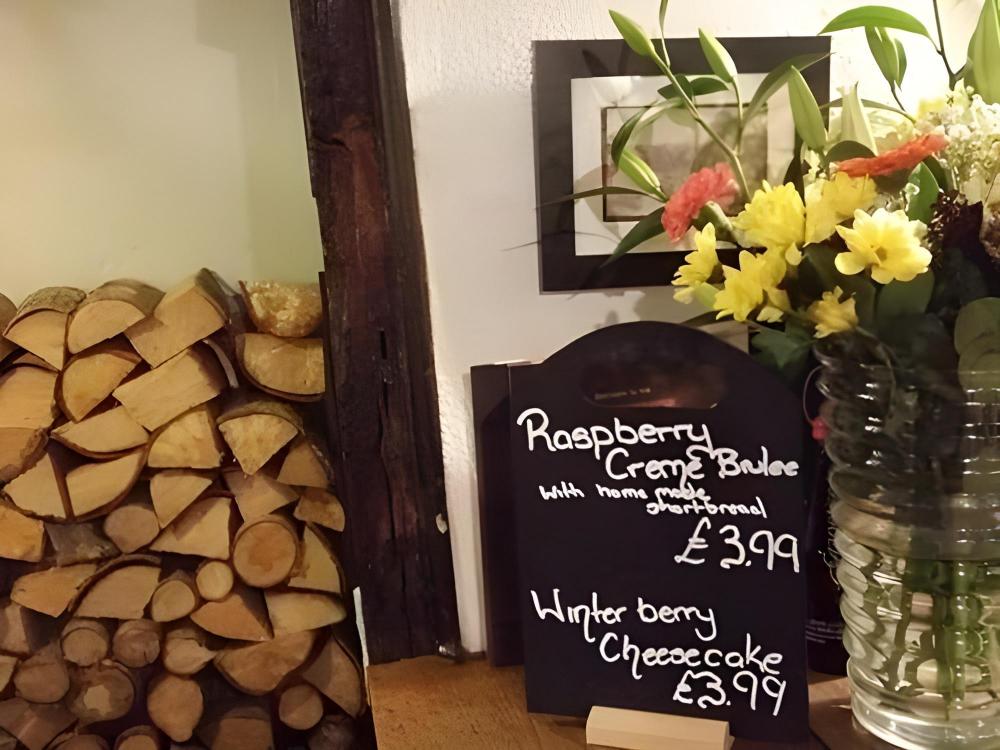 Raspberry
Creme Brulee
with home made
shortbread
£3.99
Winter berry
Cheesecake
£3.99